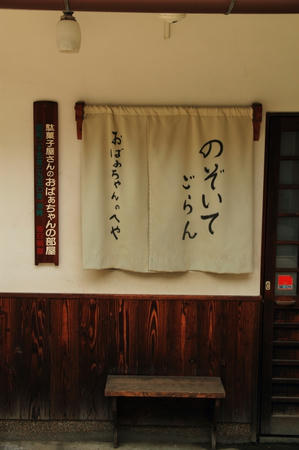 のぞいて
ごらん
おばぁちゃんのへや
駄菓子屋さんのおばぁちゃんの部屋